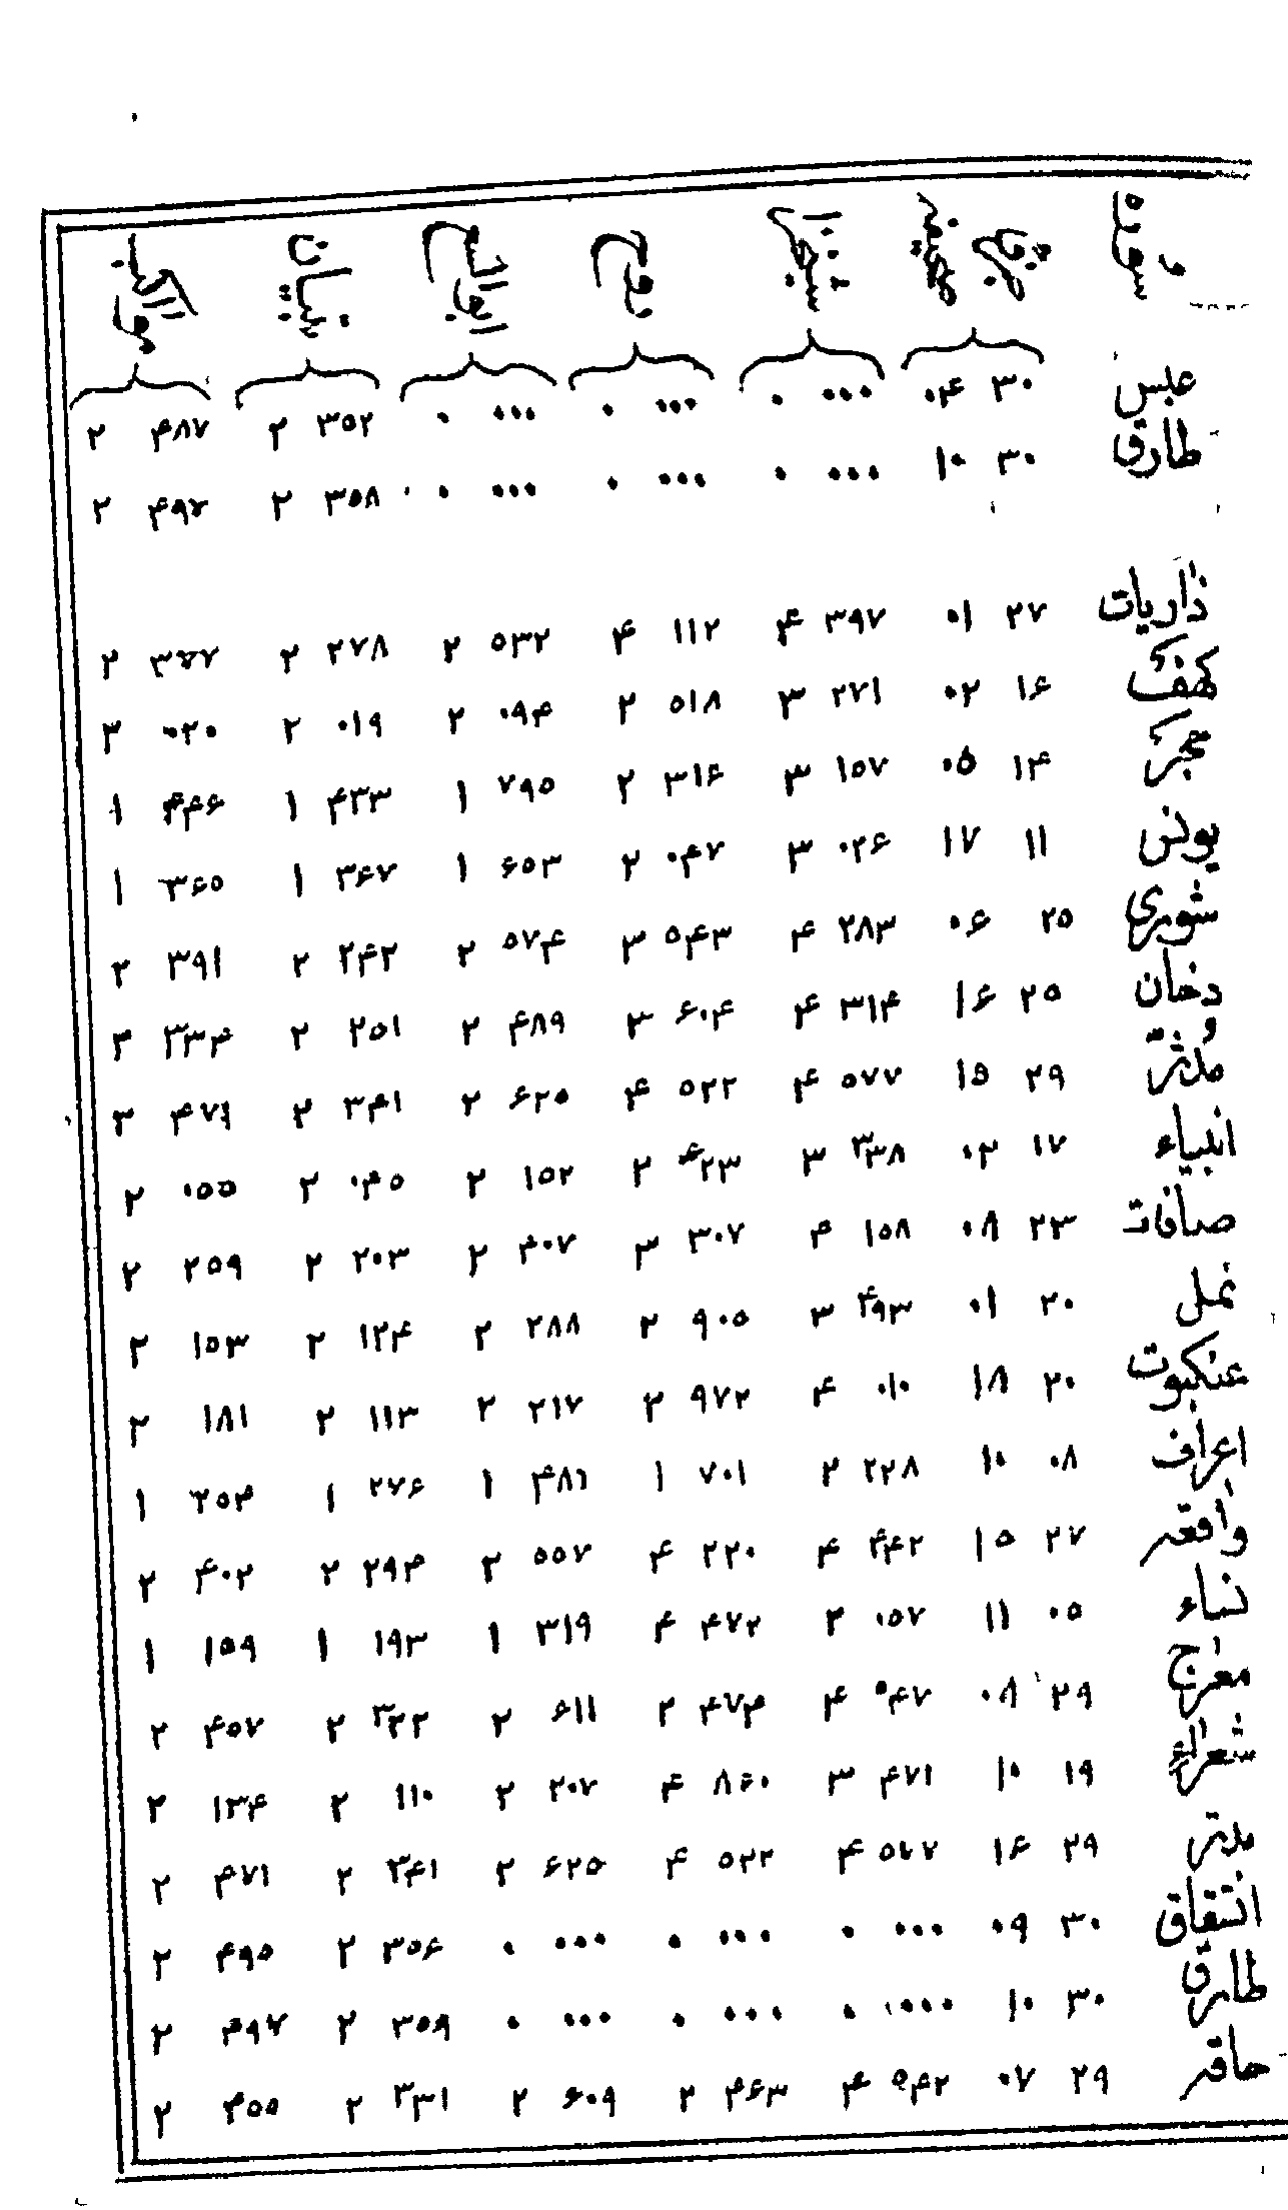 سوره تبیان
عبس ۳۰ ۰۴ ۰۰۰ ۰ ۰۰۰ ۰ ۰۰۰ ۰ ۳۵۲ ۲ ۴۸۷ ۲
طارق ۳۰ ۱۰ ۰۰۰ ۰ ۰۰۰ ۰ ۰۰۰ ۰ ۳۵۸ ۲ ۴۹۷ ۲
ذاریات ۲۷ ۰۱ ۳۹۷ ۴ ۱۱۲ ۴ ۵۳۲ ۲ ۲۷۸ ۲ ۳۷۷ ۲
کهف ۱۶ ۰۲ ۲۷۱ ۳ ۵۱۸ ۲ ۰۹۴ ۲ ۰۱۹ ۲ ۰۲۰ ۲
حجر ۱۴ ۰۵ ۱۵۷ ۳ ۳۱۶ ۲ ۷۹۵ ۱ ۴۳۳ ۱ ۴۴۶ ۱
یونس ۱۱ ۱۷ ۰۲۶ ۳ ۰۴۷ ۲ ۶۵۳ ۱ ۳۶۷ ۱ ۳۶۵ ۱
شوری ۲۵ ۰۶ ۲۸۳ ۴ ۵۴۳ ۳ ۵۷۴ ۲ ۲۴۲ ۲ ۳۹۱ ۲
دخان ۲۵ ۱۶ ۳۱۴ ۴ ۶۰۴ ۳ ۴۸۹ ۲ ۲۵۱ ۲ ۳۳۴ ۲
مدثر ۲۹ ۱۵ ۵۷۷ ۴ ۵۲۲ ۴ ۶۲۵ ۲ ۳۴۱ ۲ ۴۷۱ ۲
انبیاء ۱۷ ۰۲ ۳۳۸ ۳ ۶۲۳ ۲ ۱۵۲ ۲ ۰۴۵ ۲ ۰۵۵ ۲
صافات ۲۳ ۰۸ ۱۵۸ ۴ ۳۰۷ ۳ ۴۰۷ ۲ ۲۰۳ ۲ ۲۵۹ ۲
نمل ۲۰ ۰۱ ۴۹۳ ۳ ۹۰۵ ۲ ۲۸۸ ۲ ۱۲۴ ۲ ۱۵۳ ۲
عنکبوت ۲۰ ۱۸ ۰۱۰ ۴ ۹۷۲ ۲ ۲۱۷ ۲ ۱۱۳ ۲ ۱۸۱ ۲
اعراف ۰۸ ۱۰ ۲۲۸ ۲ ۷۰۱ ۱ ۴۸۱ ۱ ۲۷۶ ۱ ۲۵۴ ۱
واقعه ۲۷ ۱۵ ۴۴۲ ۴ ۲۲۰ ۴ ۵۵۷ ۲ ۲۹۴ ۲ ۴۰۲ ۲
نساء ۰۵ ۱۱ ۰۵۷ ۲ ۴۷۲ ۴ ۳۱۹ ۱ ۱۹۳ ۱ ۱۵۹ ۱
معارج ۲۹ ۰۸ ۵۴۷ ۴ ۴۷۴ ۲ ۶۱۱ ۲ ۳۳۲ ۲ ۴۵۷ ۲
شعراء ۱۹ ۱۰ ۴۷۱ ۳ ۸۶۰ ۴ ۲۰۷ ۲ ۱۱۰ ۲ ۱۳۴ ۲
مدثر ۲۹ ۱۶ ۵۷۷ ۴ ۵۲۲ ۴ ۶۲۵ ۲ ۳۴۱ ۲ ۴۷۱ ۲
انشقاق ۳۰ ۰۹ ۰۰۰ ۰ ۰۰۰ ۰ ۰۰۰ ۰ ۳۵۶ ۲ ۴۹۵ ۲
طارق ۳۰ ۱۰ ۰۰۰ ۰ ۰۰۰ ۰ ۰۰۰ ۰ ۳۵۹ ۲ ۴۹۷ ۲
حاقه ۲۹ ۰۷ ۵۴۲ ۴ ۴۶۳ ۲ ۶۰۹ ۲ ۳۳۱ ۲ ۴۵۵ ۲